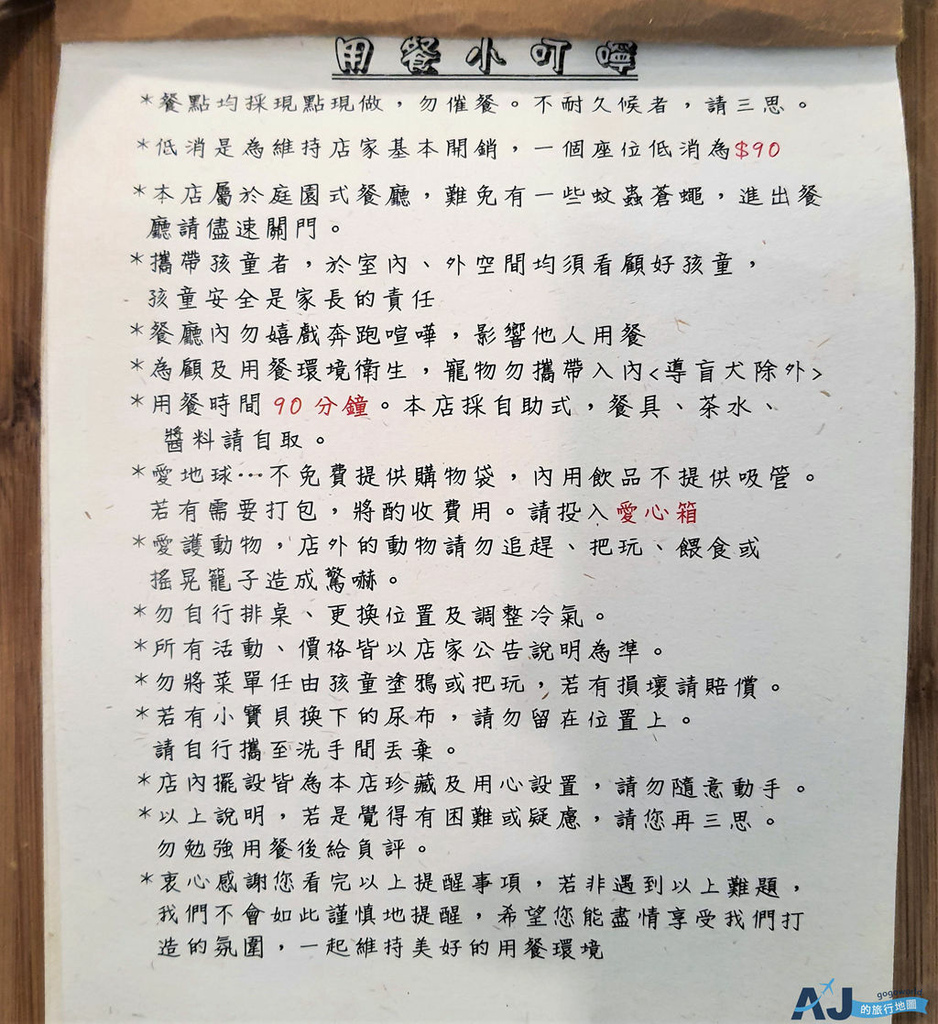 用餐小叮嚀
*餐點均採現點現做，勿催餐。不耐久候者，請三思。
*低消是為維持店家基本開銷，一個座位低消為$90
*本店屬於庭園式餐廳，難免有一些蚊蟲蒼蠅，進出餐
廳請儘速關門。
*攜帶孩童者，於室內、外空間均須看顧好孩童，
孩童安全是家長的責任
*餐廳內勿嬉戲奔跑喧嘩，影響他人用餐
*為顧及用餐環境衛生，寵物勿攜帶入內<導盲犬除外>
*用餐時間90分鐘。本店採自助式，餐具、茶水、
醬料請自取。
*愛地球…不免費提供購物袋，內用飲品不提供吸管。
若有需要打包，將酌收費用。請投入愛心箱
*愛護動物，店外的動物請勿追趕、把玩、餵食或
搖晃籠子造成驚嚇。
*勿自行排桌、更換位置及調整冷氣。
*所有活動、價格皆以店家公告說明為準。
*勿將菜單任由孩童塗鴉或把玩，若有損壞請賠償。
*若有小寶貝換下的尿布，請勿留在位置上。
請自行攜至洗手間丟棄。
*店內擺設皆為本店珍藏及用心設置，請勿隨意動手。
*以上說明，若是覺得有困難或疑慮，請您再三思。
勿勉強用餐後給負評。
*衷心感謝您看完以上提醒事項，若非遇到以上難題，
我們不會如此謹慎地提醒，希望您能盡情享受我們打
造的氛圍，一起維持美好的用餐環境
gogoworld
AJ的旅行地圖